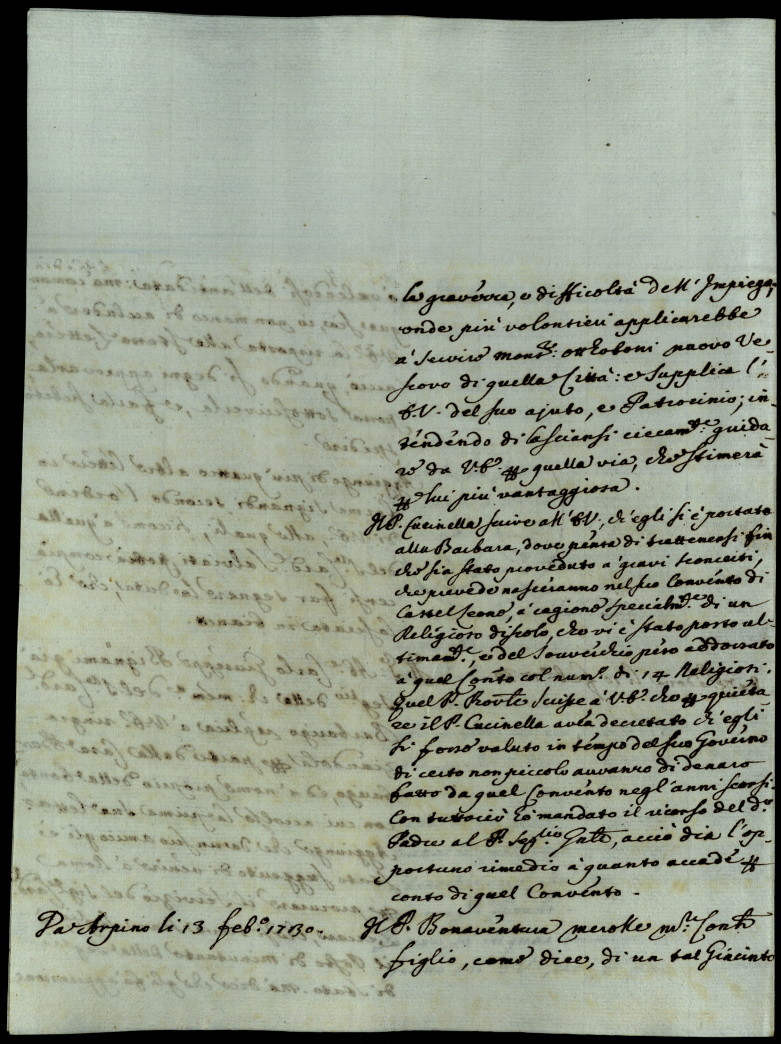 la gravezza, e difficoltà dell' Impiego;
onde più volontieri applicarebbe
à Servire Mons.r Ottoboni nuovo Ve-
scovo di quella Città: e Supplica l'
EV. del suo ajuto, e Patrocinio; in-
tendendo di lasciarsi ciecam.te guida-
re da VE. per quella via, che Stimerà
per lui più vantaggiosa.
Il P. Cucinella scrive all' EV., ch'egli si è portato
alla Barbara, dove pensa di trattenersi fin
che sia stato proveduto a' gravi sconcerti,
che prevede nasceranno nel suo Convento di
Castel Leone, à cagione specialm.te di un
Religioso discolo, che vi è stato posto ul-
timam.te, e del Soverchio peso addossato
à quel Con.to col num.o di 14 Religiosi.
Quel P. Prov.le Scrisse à VE. che per quieta-
re il P. Cucinella avea decretato ch'egli
Si fosse valuto in tempo del suo Governo
di certo non piccolo avvanzo di denaro
fatto da quel Convento negl' anni scorsi.
Con tuttociò hò mandato il ricorso del d.o
Padre al P. Seg.rio Gnle, acciò dia l'op-
portuno rimedio à quanto accade per
conto di quel Convento.
Da Arpino li 13 feb.o 1730.
Il P. Bonaventura Merolle M.r Conti
figlio, come dice, di un tal Giacinto